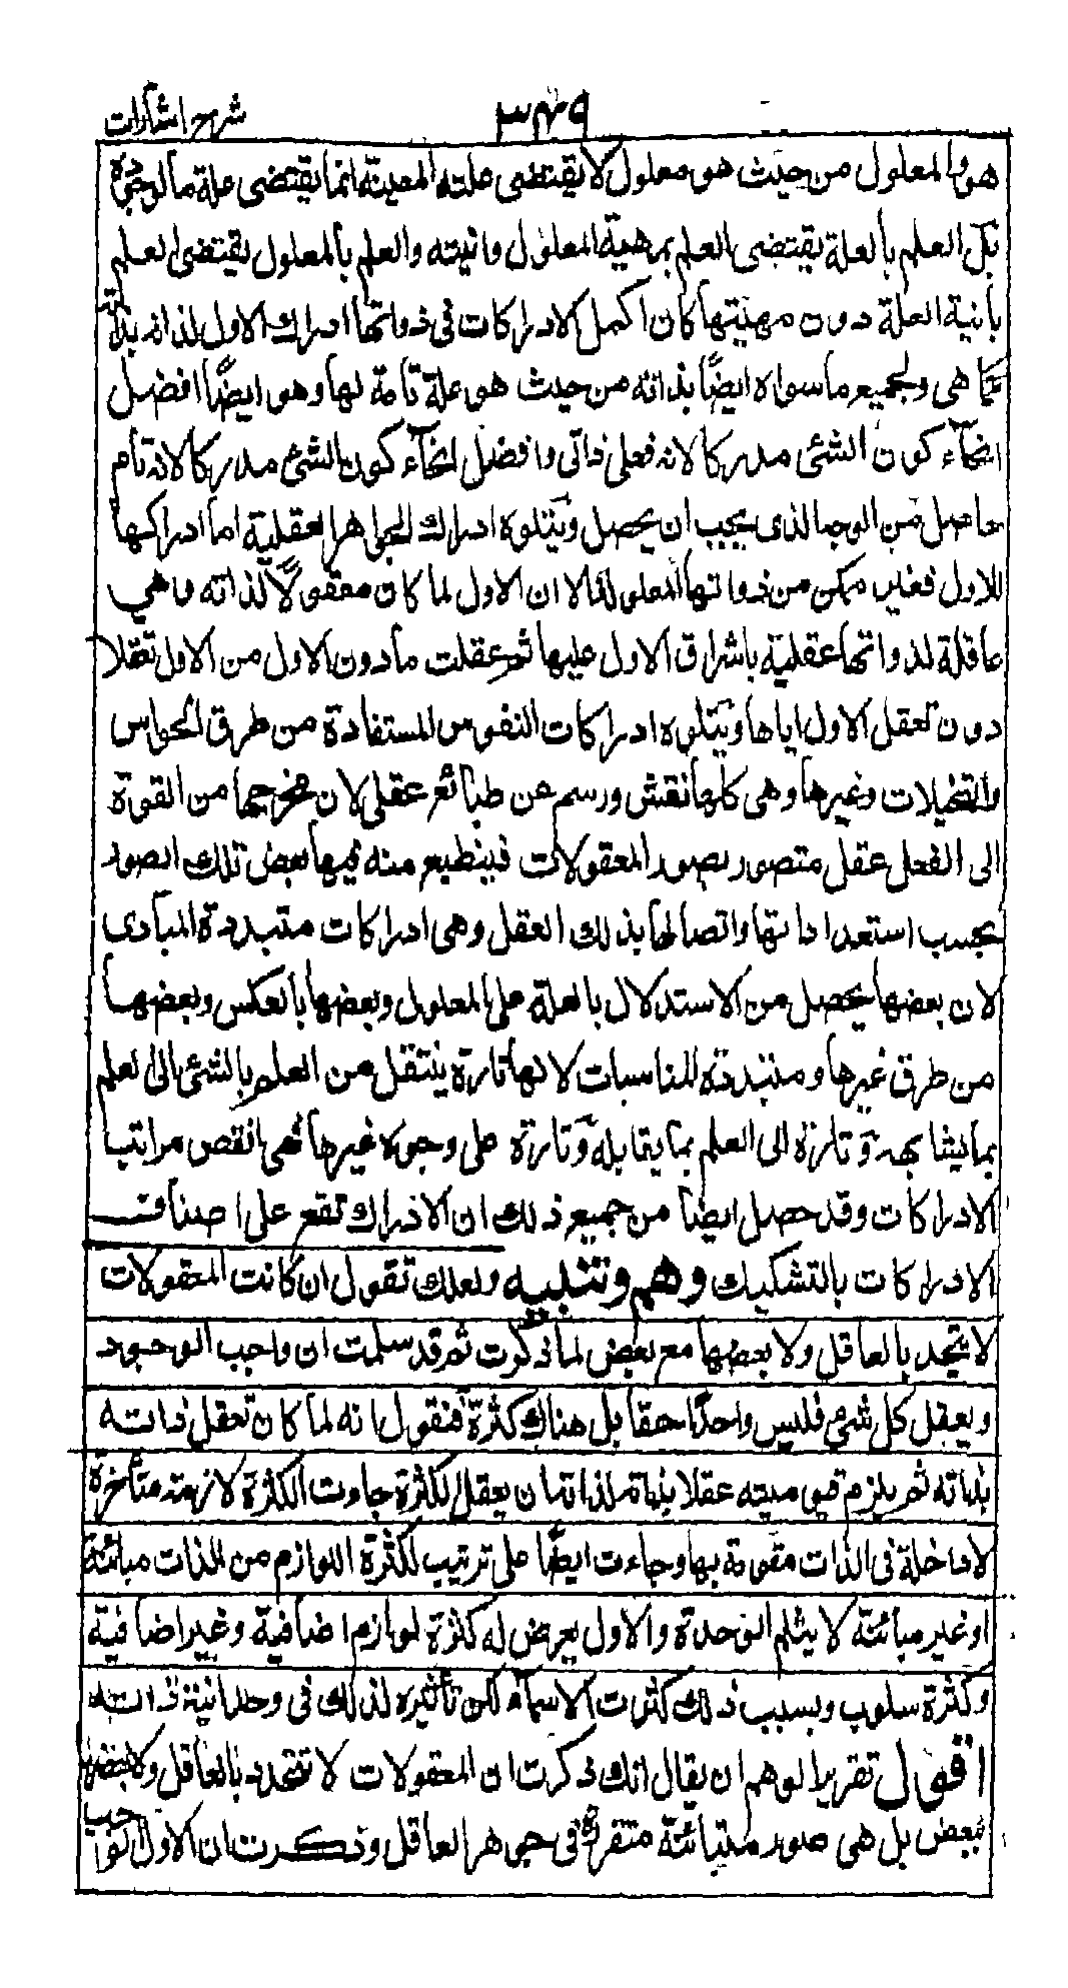 شرح اشارات
٣٤٩
هو والمعلول من حيث هو معلول لا يقتضى علته المعينة انما يقتضى علة ما لوجوده
بل العلم بالعلة يقتضى العلم بمهية المعلول وانيته والعلم بالمعلول يقتضى العلم
بانية العلة دون مهيتها كان اكمل الادراكات فى ذواتها ادراك الاول لذاته بذاته
كما هى ولجميع ما سواه ايضًا بذاته من حيث هو علة تامة لها وهو ايضًا افضل
انحآء كون الشئ مدركا لانه فعلى ذاتى وافضل انحآء كون الشئ مدركا لانه تام
حاصل من الوجه الذى يجب ان يحصل ويتلوه ادراك الجواهر العقلية اما ادراكها
للاول فغير ممكن من ذواتها المعلولة الا ان الاول لما كان معقولًا لذاته وهي
عاقلة لذواتها عقلية باشراق الاول عليها ثم عقلت ما دون الاول من الاول تعقلا
دون تعقل الاول اياها ويتلوه ادراكات النفوس المستفادة من طرق الحواس
والتخيلات وغيرها وهى كلها نقش ورسم عن طبائع عقلى لان مخرجها من القوة
الى الفعل عقل متصور بصور المعقولات فينطبع منه فيها بعض تلك الصور
بحسب استعداداتها واتصالها بذلك العقل وهى ادراكات متبددة المبادى
لان بعضها يحصل من الاستدلال بالعلة على المعلول وبعضها بالعكس وبعضها
من طرق غيرها ومتبددة المناسبات لانها تارة ينتقل من العلم بالشئ الى العلم
بما يشابهه وتارة الى العلم بما يقابله وتارة على وجوه غيرها فهى انقص مراتب
الادراكات وقد حصل ايضا من جميع ذلك ان الادراك تقع على اصناف
الادراكات بالتشكيك وهم وتنبيه ولعلك تقول ان كانت المعقولات
لا يتحد بالعاقل ولا بعضها مع بعض لما ذكرت ثم قد سلمت ان واجب الوجود
ويعقل كل شئ فليس واحدًا حقا بل هناك كثرة فنقول انه لما كان تعقل ذاته
بذاته ثم يلزم قيوميته عقلا بذاته لذاته ان يعقل الكثرة جاءت الكثرة لازمة متأخرة
لا داخلة فى الذات مقومة بها وجاءت ايضًا على ترتيب لكثرة اللوازم من الذات مباينة
او غير مباينة لا يثلم الوحدة والاول يعرض له كثرة لوازم اضافية وغير اضافية
وكثرة سلوب وبسبب ذلك كثرت الاسماء لكن تأثيره لذلك فى وحدانية ذاته
اقول تقرير الوهم ان يقال انك ذكرت ان المعقولات لا تتحد بالعاقل ولا بعضها
ببعض بل هى صور متباينة متقررة فى جوهر العاقل وذكرت ان الاول الواجب